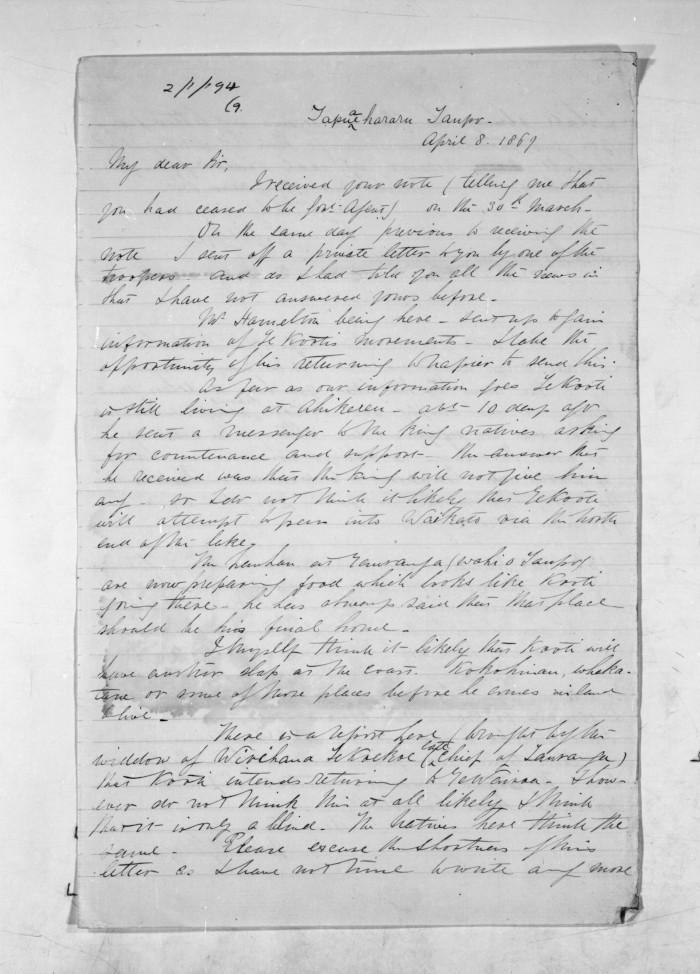 2/1/194
69.
Tapuaeharuru Taupo.
April 8. 1869
My dear Sir,
I received your note (telling me that
you had ceased to be Govt. Agent) on the 30th March -
On the same day previous to receiving the
note I sent off a private letter to you by one of the
troopers - and as I had told you all the news in
that I have not answered yours before.
Mr Hamelton being here - sent up to gain
information of Te Kootis movements - I take the
opportunity of his returning to Napier to send this.
As far as our information goes Te Kooti
is still living at Ahikereru - abt 10 days ago
he sent a messenger to the King natives asking
for countenance and support - the answer that
he received was that the King will not give him
any - so I do not think it likely that Te Kooti
will attempt to pass into Waikato via the north
end of the lake.
The hauhau at Tauranga (wahi o Taupo)
are now preparing food which looks like Kooti
going there - he has always said that that place
should be his final home -
I myself think it likely that Kooti will
have another slap at the coast. Kokohinau, Whaka-
tane or some of those places before he comes inland
to live -
There is a report here (brought by the
widdow of Wirihana Te Koekoe (late Chief of Tauranga)
that Kooti intends returning to Te Wairoa - I how-
ever do not think this at all likely I think
that it is only a blind. The Natives here think the
same - Please excuse the shortness of this
letter as I have not time to write any more